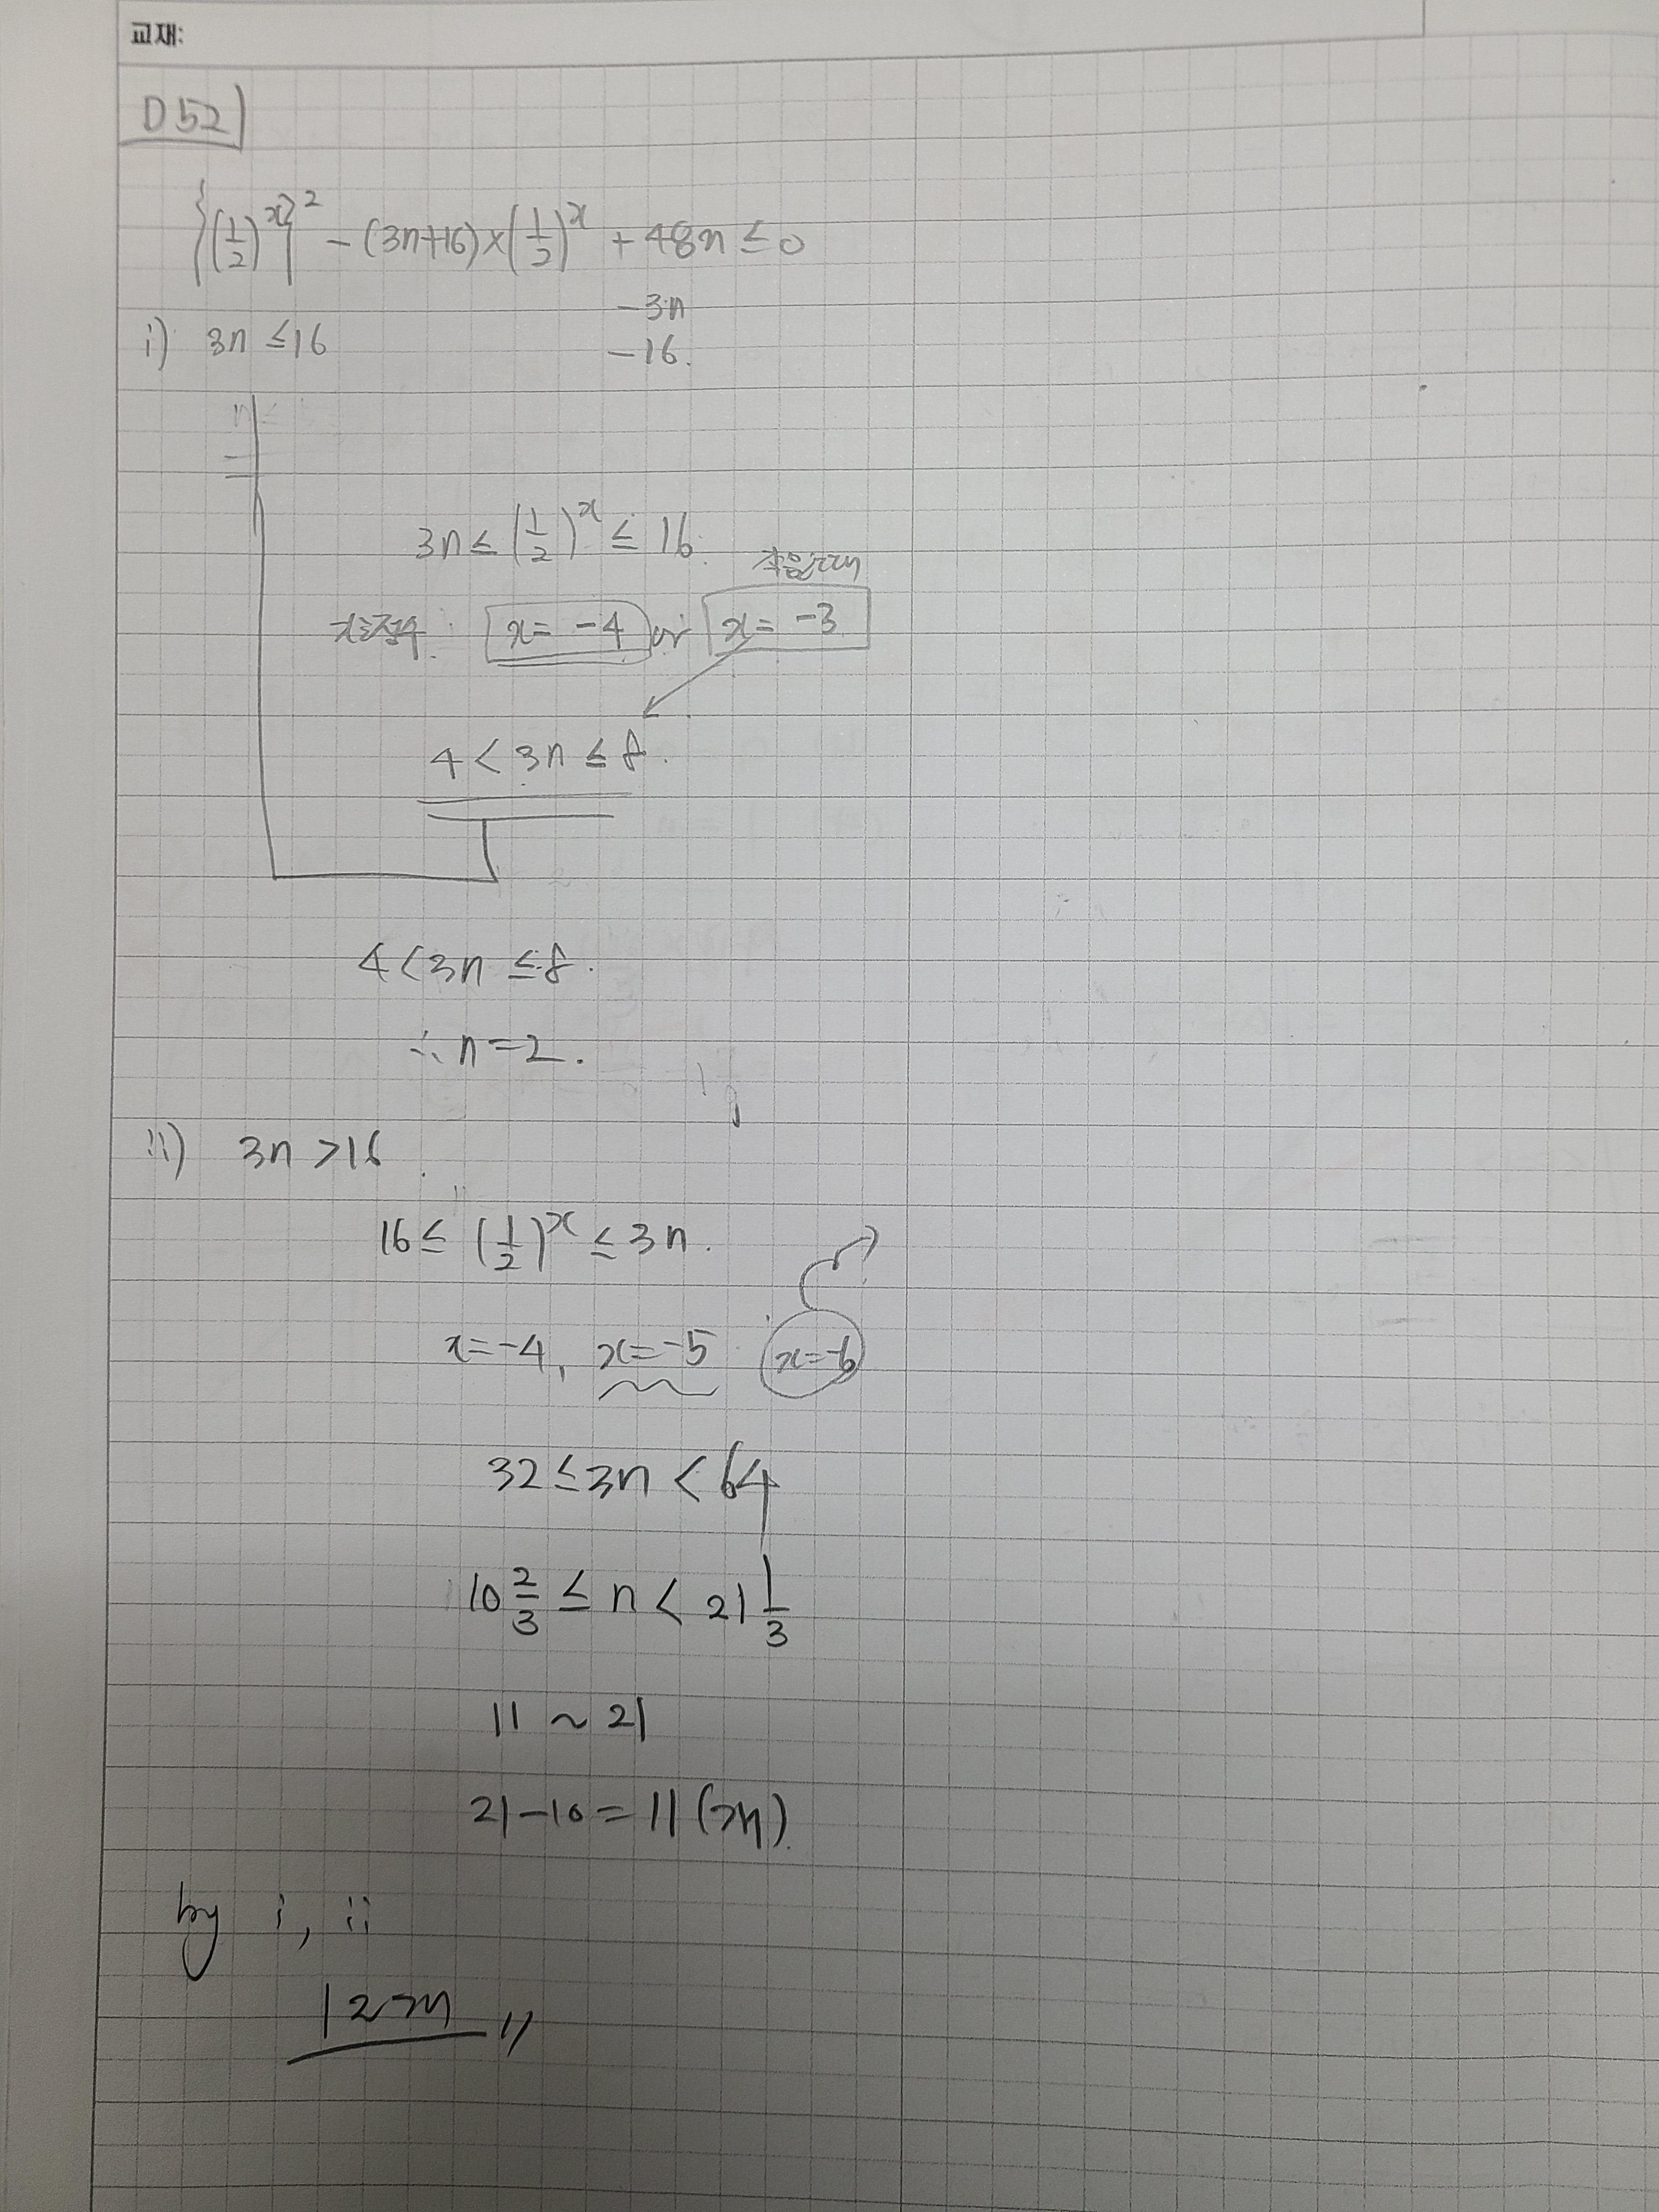 교재:
D52)
{(1/2)^x}^2 - (3n+16)×(1/2)^x + 48n ≤ 0
-3n
i) 3n ≤ 16
-16.
3n ≤ (1/2)^x ≤ 16.
x = -4 or x = -3
4 < 3n ≤ 8.
4 < 3n ≤ 8.
∴ n = 2.
ii) 3n > 16
16 ≤ (1/2)^x ≤ 3n.
x = -4, x = -5 x = -6
32 ≤ 3n < 64
10 2/3 ≤ n < 21 1/3
11 ~ 21
21 - 10 = 11 (개)
by i, ii
12개 〃